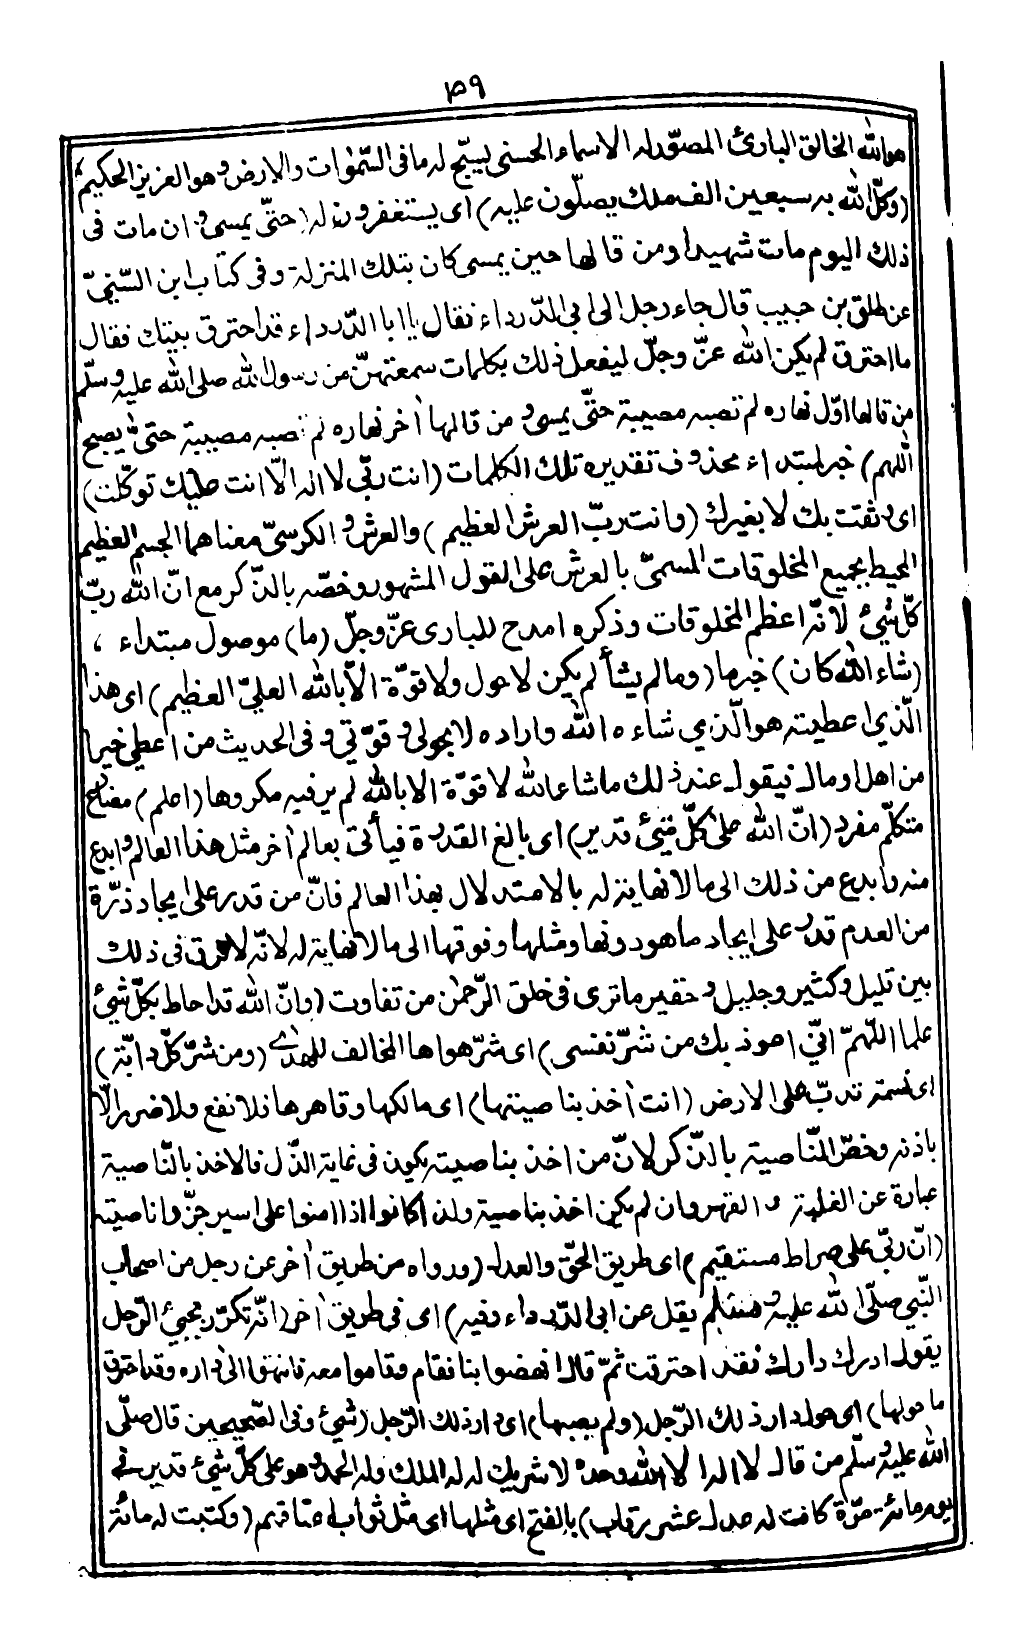 ٣٥٩
هو الله الخالق البارئ المصوّر له الاسماء الحسنى يسبّح له ما فى السّمٰوات والارض وهو العزيز الحكيم
(وكلّ الله به سبعين الف ملك يصلّون عليه) اى يستغفرون له (حتّى يمسى و ان مات فى
ذلك اليوم مات شهيدا ومن قالها حين يمسى كان بتلك المنزلة وفى كتاب ابن السّنيّ
عن طلق بن حبيب قال جاء رجل الى ابى الدّرداء فقال يا ابا الدّرداء قد احترق بيتك فقال
ما احترق لم يكن الله عزّ وجلّ ليفعل ذلك بكلمات سمعتهنّ من رسول الله صلى الله عليه وسلّم
من قالها اوّل نهاره لم تصبه مصيبة حتّى يمسى و من قالها اٰخر نهاره لم تصبه مصيبة حتى يصبح
اللّهم) خبر لمبتداء محذوف تقديره تلك الكلمات (انت ربّى لا اله الّا انت عليك توكّلت)
اى وثقت بك لا بغيرك (وانت ربّ العرش العظيم) والعرش و الكرسىّ معناهما الجسم العظيم
المحيط بجميع المخلوقات المسمىّ بالعرش على القول المشهور وخصّه بالذّكر مع انّ الله ربّ
كلّ شئ لانّه اعظم المخلوقات وذكره امدح للبارى عزّ وجلّ (ما) موصول مبتداء ،
(شاء الله كان) خبر ما (وما لم يشأ لم يكن لا حول ولا قوّة الّا بالله العلىّ العظيم) اى هذا
الّذى اعطيته هو الّذى شاءه الله واراده لا بحولى و قوّتى و فى الحديث من اعطى خيرا
من اهل او مال فيقول عند ذلك ما شاء الله لا قوّة الا بالله لم ير فيه مكروها (اعلم) مضارع
متكلّم مفرد (انّ الله على كلّ شئ قدير) اى بالغ القدرة فيأتى بعالم اٰخر مثل هذا العالم و ابدع
منه وابدع من ذلك الى ما لا نهاية له بالاستدلال بهذا العالم فانّ من قدر على ايجاد ذرّة
من العدم قدر على ايجاد ما هو دونها ومثلها وفوقها الى ما لا نهاية له لانّه لا فرق فى ذلك
بين قليل وكثير وجليل و حقير ما ترى فى خلق الرّحمٰن من تفاوت (وانّ الله قد احاط بكلّ شئ
علما اللّهمّ انّى اعوذ بك من شرّ نفسى) اى شرّ هواها المخالف للهدى (ومن شرّ كلّ دابّة)
اى نسمة تدبّ على الارض (انت اٰخذ بناصيتها) اى مالكها وقاهرها فلا نفع ولا ضر الّا
باذنه وخصّ النّاصية بالذّكر لانّ من اخذ بناصيته يكون فى غاية الذّل فالاخذ بالنّاصية
عبارة عن الغلبة و القهر وان لم يكن اخذ بناصية ولذا كانوا اذا امنوا على اسير جزّوا ناصيته
(انّ ربّى على صراط مستقيم) اى طريق الحقّ والعدل (ورواه من طريق اٰخر عن رجل من اصحاب
النّبى صلّى الله عليه و سلّم لم يقل عن ابى الدّرداء وفيه) اى فى طريق اٰخر (انّه تكرّر مجيئ الرّجل
يقول ادرك دارك فقد احترقت ثمّ قال انهضوا بنا فقام وقاموا معه فانتهوا الى داره وقد احترق
ما حولها) اى حول دار ذلك الرّجل (ولم يصبها) اى دار ذلك الرّجل (شئ وفى الصّحيحين قال صلّى
الله عليه و سلّم من قال لا اله الا الله وحده لا شريك له له الملك وله الحمد و هو على كلّ شئ قدير فى
يوم مائة مرّة كانت له عدل عشر رقاب) بالفتح اى مثلها اى مثل ثواب اعتاقهم (وكتبت له مائة